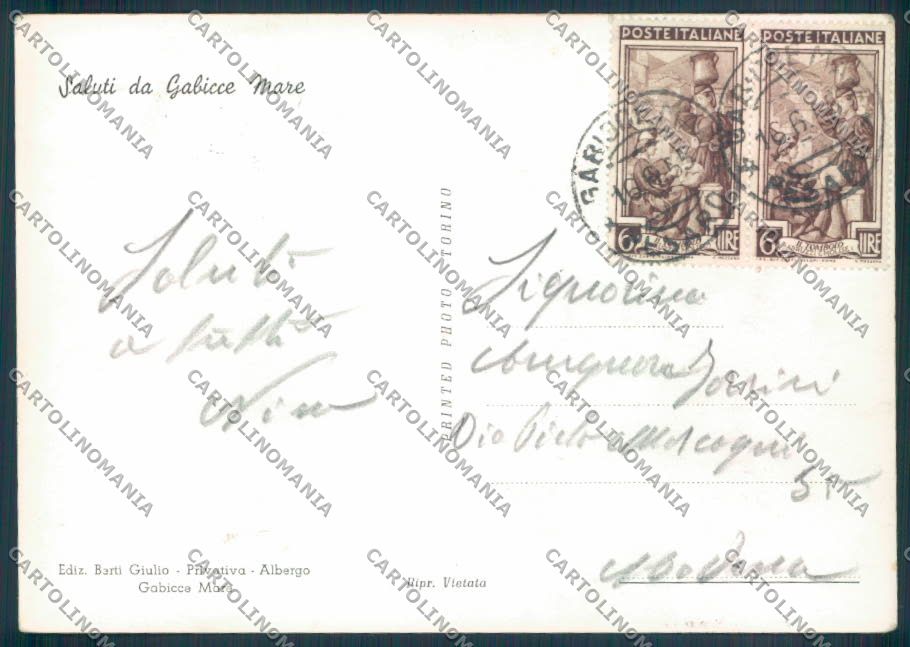 Saluti da Gabicce Mare
POSTE ITALIANE
POSTE ITALIANE
6 LIRE
IL TOMBOLO
6 LIRE
IL TOMBOLO
GABICCE
Saluti
a tutti
Nino
PRINTED PHOTO TORINO
Signorina
Via Pietro Mascagni
5
Modena
Ediz. Berti Giulio - Privativa - Albergo
Gabicce Mare
Ripr. Vietata
CARTOLINOMANIA